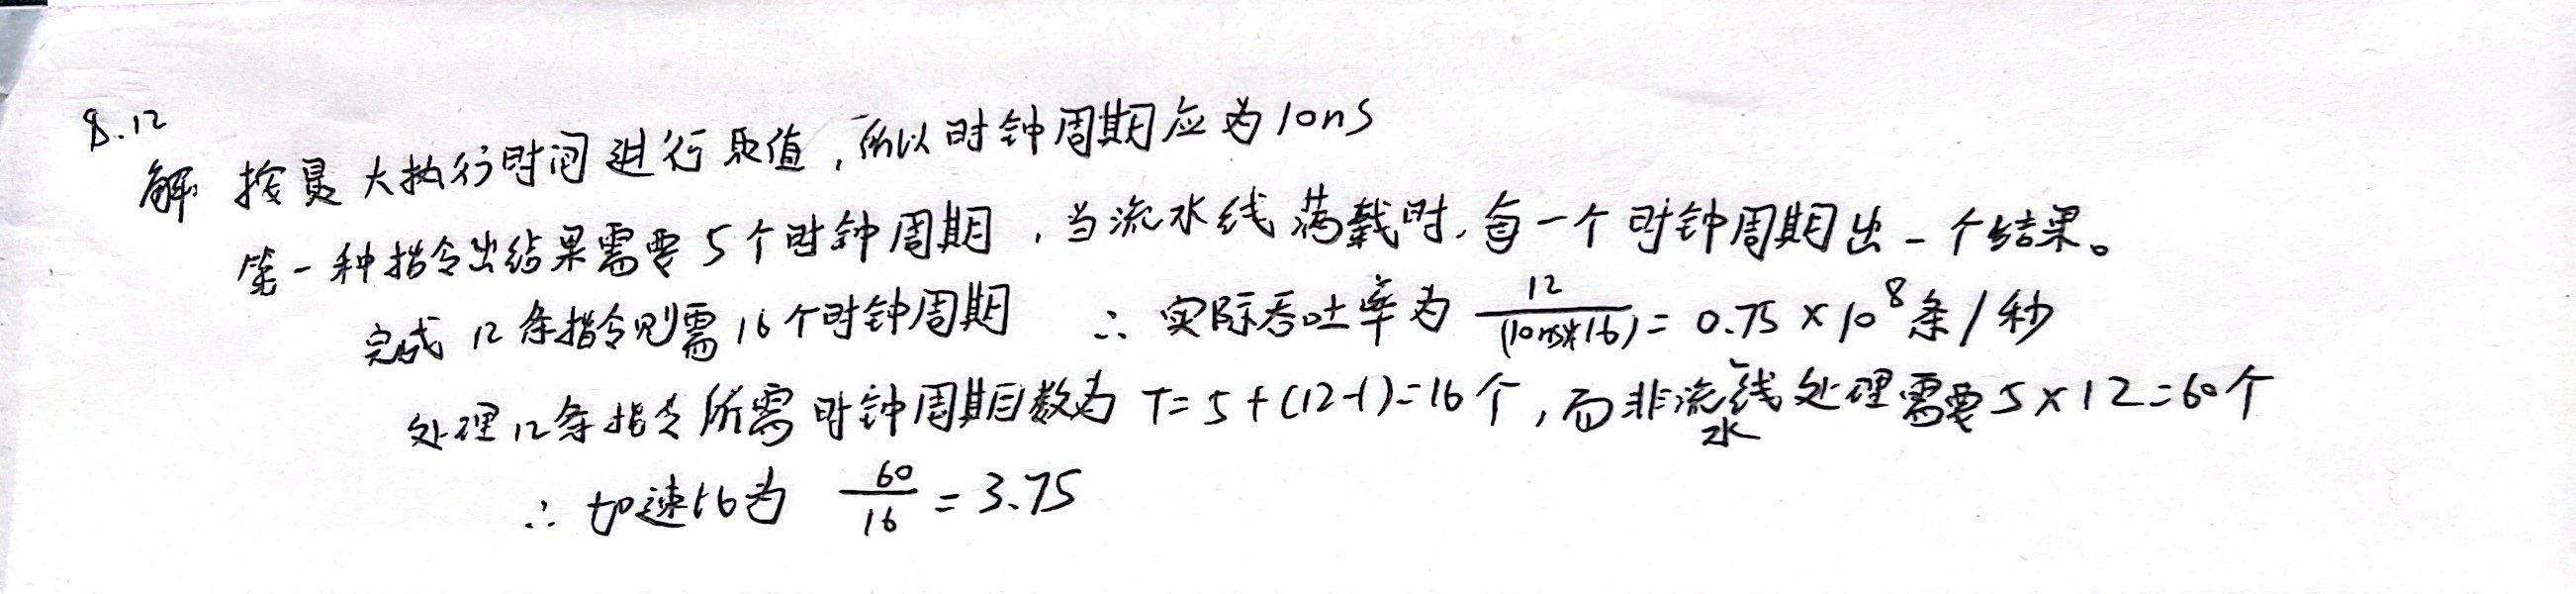 8.12
解 按最大执行时间进行取值,所以时钟周期应为10ns
第一种指令出结果需要5个时钟周期,当流水线满载时,每一个时钟周期出一个结果。
完成12条指令则需16个时钟周期 ∴ 实际吞吐率为 12/(10ns*16) = 0.75×10⁸条/秒
处理12条指令所需时钟周期数为T=5+(12-1)=16个,而非流水线处理需要5×12=60个
∴ 加速比为 60/16 = 3.75